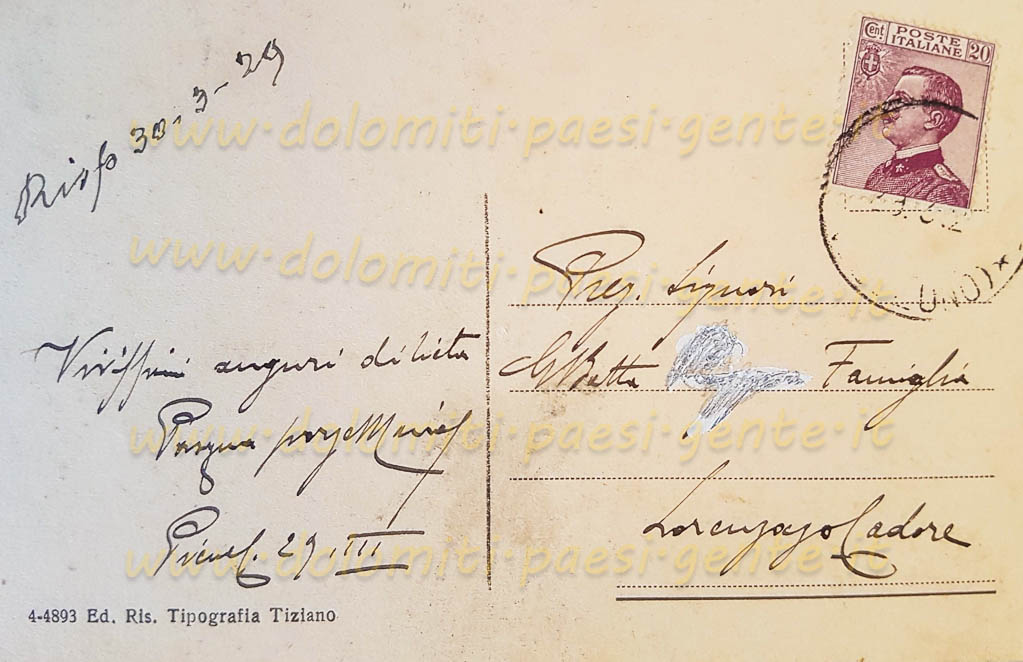 Cent. POSTE ITALIANE 20
Risp 30-3-29
UNO)
Preg. Signori
Vivissimi auguri di lieta
GBatta Famiglia
Pasqua
Pieve C. 29 III
Lorenzago Cadore
4-4893 Ed. Ris. Tipografia Tiziano
www·dolomiti·paesi·gente·it
www·dolomiti·paesi·gente·it
www·dolomiti·paesi·gente·it
www·dolomiti·paesi·gente·it